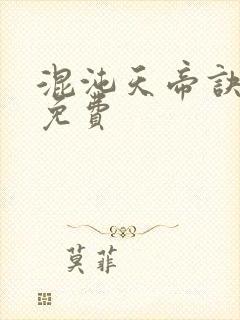 混沌天帝訣
免費
莫菲